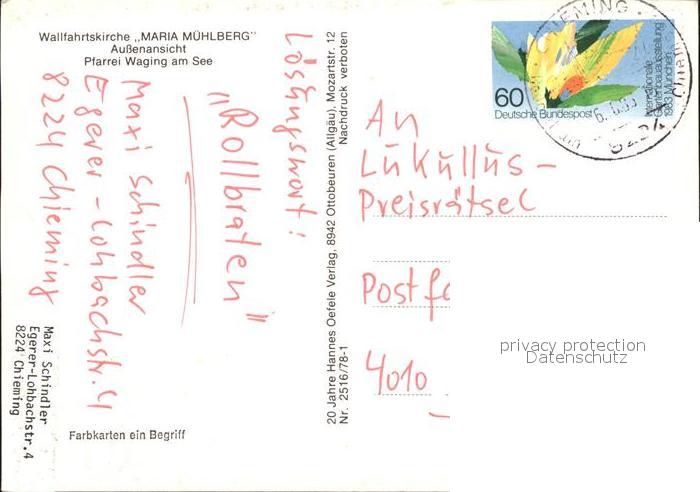 Wallfahrtskirche „MARIA MÜHLBERG"
Außenansicht
Pfarrei Waging am See
Lösungswort:
„Rollbraten"
Maxi Schindler
Egerer-Lohbachstr. 4
8224 Chieming
Maxi Schindler
Egerer-Lohbachstr.4
8224 Chieming
Farbkarten ein Begriff
20 Jahre Hannes Oefele Verlag, 8942 Ottobeuren (Allgäu), Mozartstr. 12
Nr. 2516/78-1
Nachdruck verboten
60
Deutsche Bundespost
Internationale
Gartenbauausstellung
1983 München
CHIEMING
8224
An
Lukullus-
Preisrätsel
Postfa
4010
privacy protection
Datenschutz